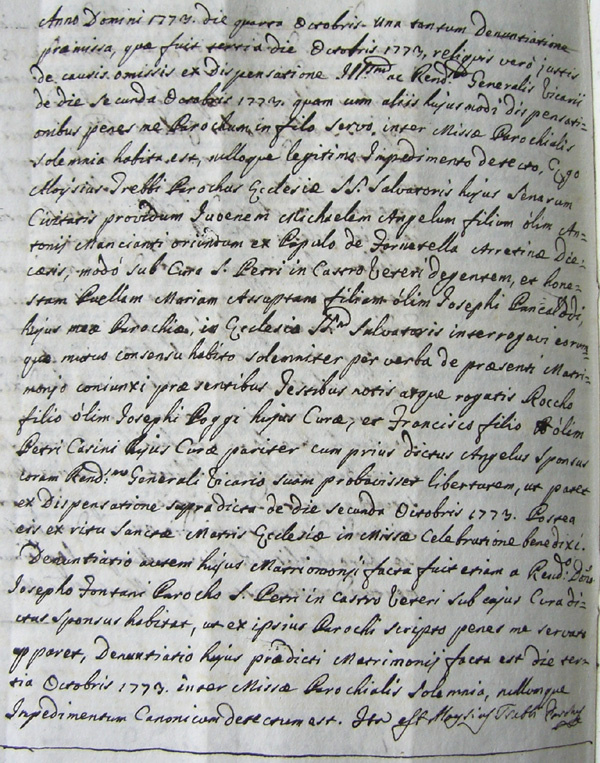 Anno Domini 1773. die quarta Octobris. Una tantum Denuntiatione
præmissa, quæ fuit tertia die Octobris 1773, reliquis vero justis
de causis omissis ex Dispensatione Ill.mi ac Rend.mi Generalis Vicarii
de die secunda Octobris 1773. quam cum aliis hujusmodi dispensati-
onibus penes me Parochum in filo servo, inter Missæ Parochialis
solemnia habita est, nulloque legitimo Impedimento detecto, Ego
Aloysius Trebbi Parochus Ecclesiæ SS. Salvatoris hujus Senarum
Civitatis providum Juvenem Michaelem Angelum filium olim An-
tonij Mancianti oriundum ex Populo de Tornetella Arretinæ Diœ-
cesis, modò sub Cura S. Petri in Castro Veteri degentem, et hone-
stam Puellam Mariam Assuptam filiam olim Josephi
hujus meæ Parochiæ, in Ecclesia SS.mi Salvatoris interrogavi eorum-
que mutuo consensu habito solemniter per verba de præsenti Matri-
monjo coniunxi præsentibus Testibus notis atque rogatis Roccho
filio olim Josephi Poggi hujus Curæ, et Francisco filio olim
Petri Casini hujus Curæ pariter cum prius dictus Angelus Sponsus
coram Rend.mo Generali Vicario suam probavisset libertatem, ut patet
ex Dispensatione supradicta de die secunda Octobris 1773. Postea
eis ex ritu Sanctæ Matris Ecclesiæ in Missæ Celebratione benedixi.
Denuntiatio autem hujus Matrimonij facta fuit etiam a Rend.o Dno
Josepho Fontani Parocho S. Petri in Castro Veteri sub cujus Cura di-
ctus Sponsus habitat, ut ex ipsius Parochi scripto penes me servato
apparet, Denuntiatio hujus prædicti Matrimonij facta est die ter-
tia Octobris 1773. inter Missæ Parochialis solemnia, nullumque
Impedimentum Canonicum detectum est. Ita est Aloysius Trebbi